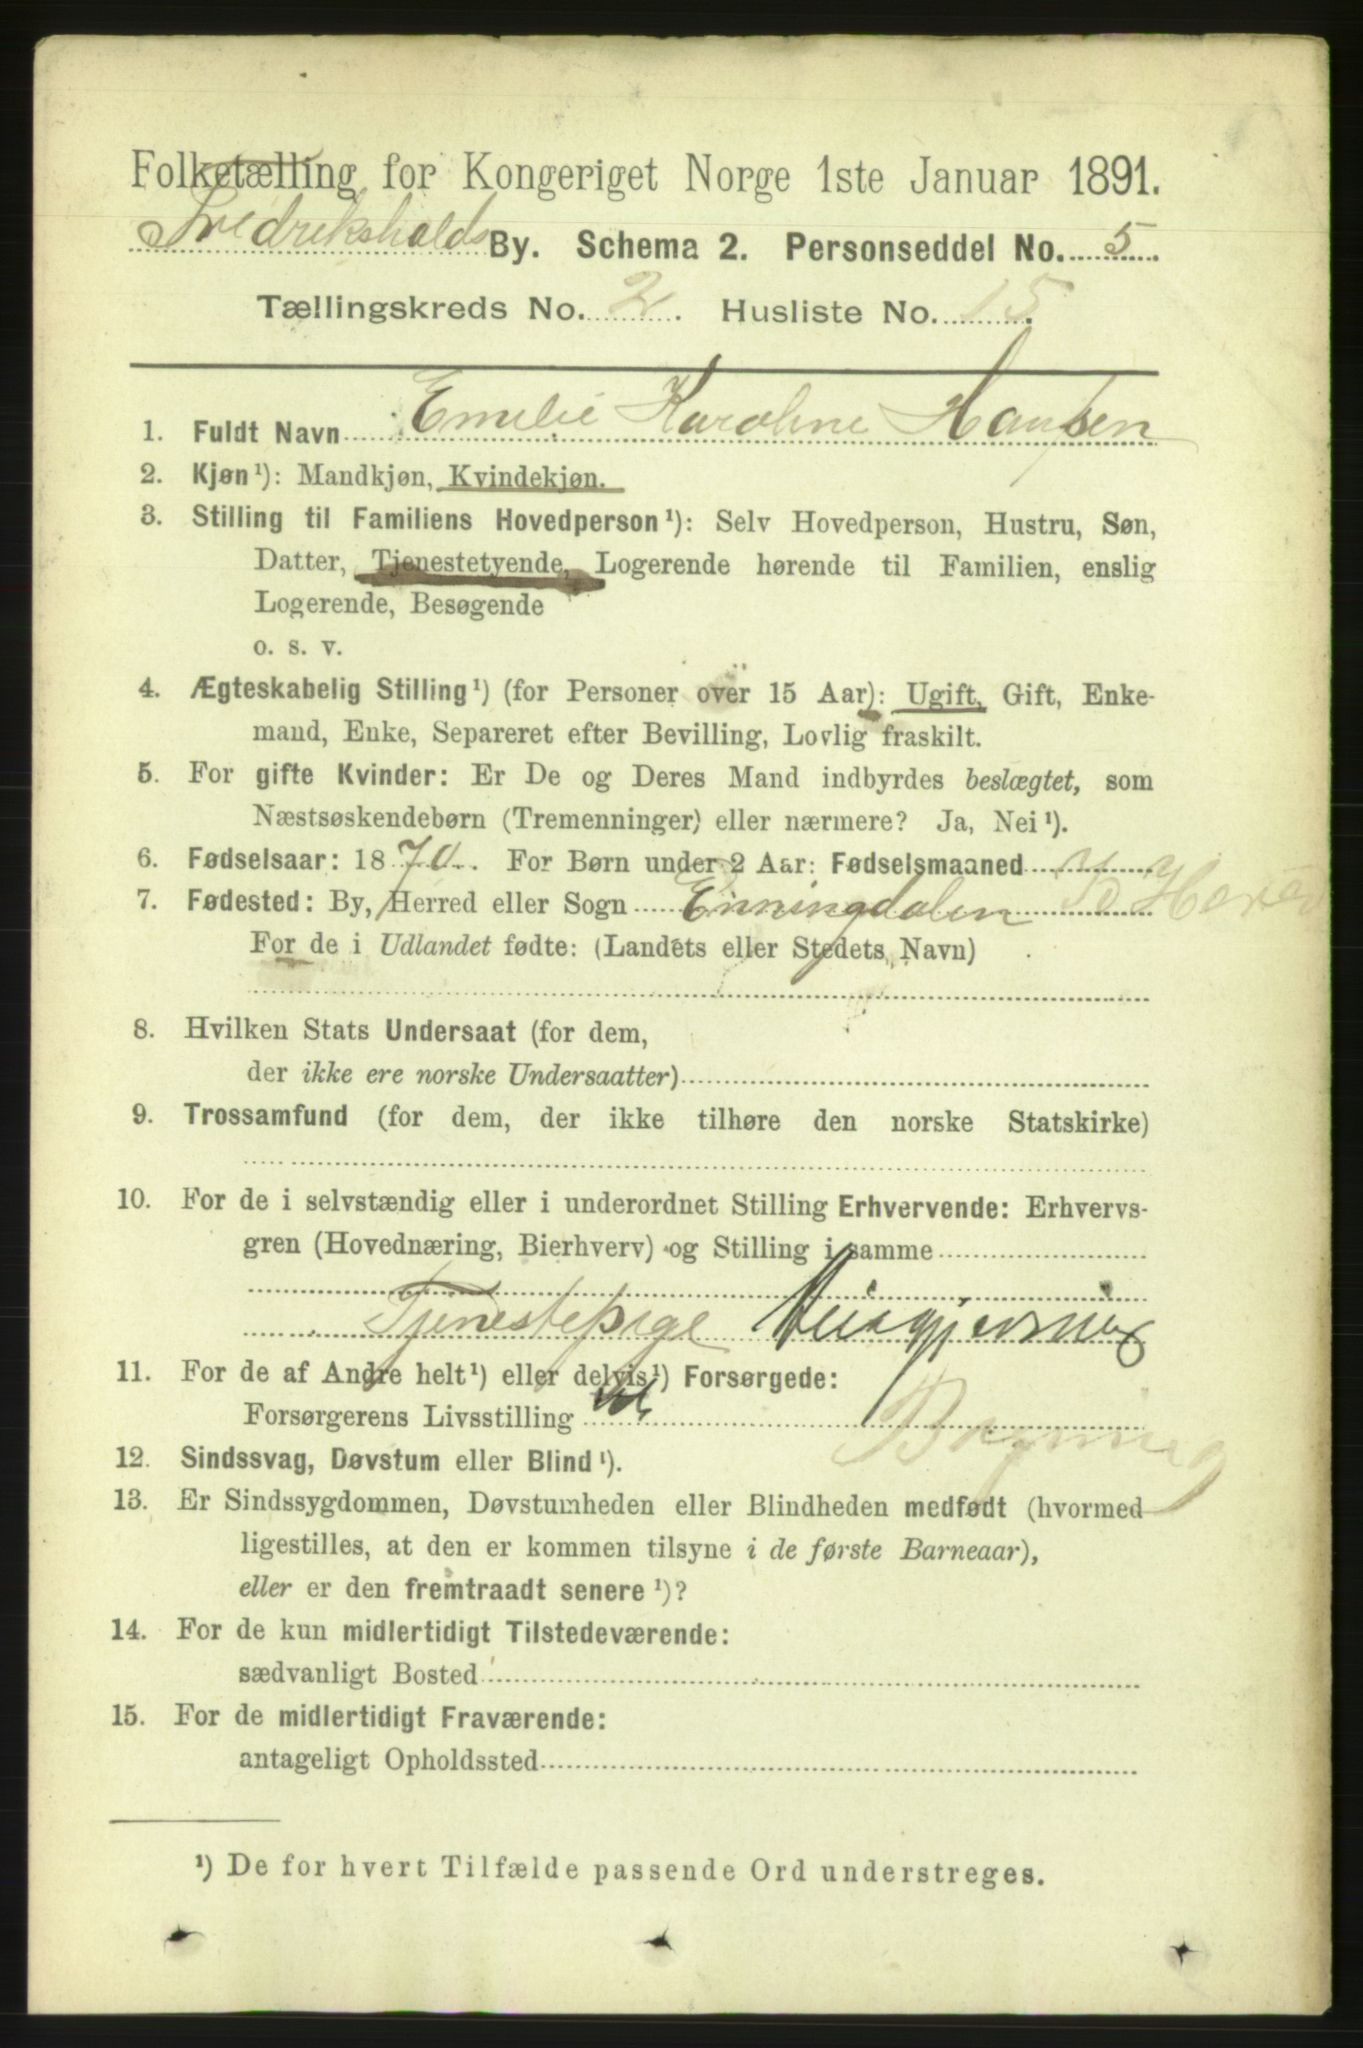 Folketælling for Kongeriget Norge 1ste Januar 1891.
Fredrikshalds By. Schema 2. Personseddel No. 5.
Tællingskreds No. 2. Husliste No. 15.
1. Fuldt Navn Emelie Karoline Hansen
2. Kjøn¹): Mandkjøn, Kvindekjøn.
3. Stilling til Familiens Hovedperson¹): Selv Hovedperson, Hustru, Søn,
Datter, Tjenestetyende, Logerende hørende til Familien, enslig
Logerende, Besøgende
o. s. v.
4. Ægteskabelig Stilling¹) (for Personer over 15 Aar): Ugift, Gift, Enke-
mand, Enke, Separeret efter Bevilling, Lovlig fraskilt.
5. For gifte Kvinder: Er De og Deres Mand indbyrdes beslægtet, som
Næstsøskendebørn (Tremenninger) eller nærmere? Ja, Nei¹).
6. Fødselsaar: 1870. For Børn under 2 Aar: Fødselsmaaned
7. Fødested: By, Herred eller Sogn Enningdalen Herred
For de i Udlandet fødte: (Landets eller Stedets Navn)
8. Hvilken Stats Undersaat (for dem,
der ikke ere norske Undersaatter)
9. Trossamfund (for dem, der ikke tilhøre den norske Statskirke)
10. For de i selvstændig eller i underordnet Stilling Erhvervende: Erhvervs-
gren (Hovednæring, Bierhverv) og Stilling i samme
Tjenestepige Heisgjerning
11. For de af Andre helt¹) eller delvis¹) Forsørgede:
Forsørgerens Livsstilling
12. Sindssvag, Døvstum eller Blind¹).
13. Er Sindssygdommen, Døvstumheden eller Blindheden medfødt (hvormed
ligestilles, at den er kommen tilsyne i de første Barneaar),
eller er den fremtraadt senere¹)?
14. For de kun midlertidigt Tilstedeværende:
sædvanligt Bosted
15. For de midlertidigt Fraværende:
antageligt Opholdssted
¹) De for hvert Tilfælde passende Ord understreges.